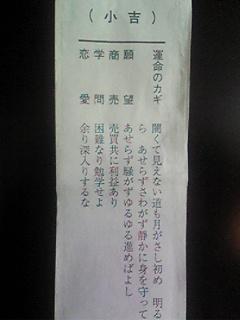 （小吉）
運命のカギ 闇くて見えない道も月がさし初め 明る
ら あせらずさわがず静かに身を守って
願望 あせらず騒がずゆるゆる進めばよし
商売 売買共に利益あり
学問 困難なり勉学せよ
恋愛 余り深入りするな